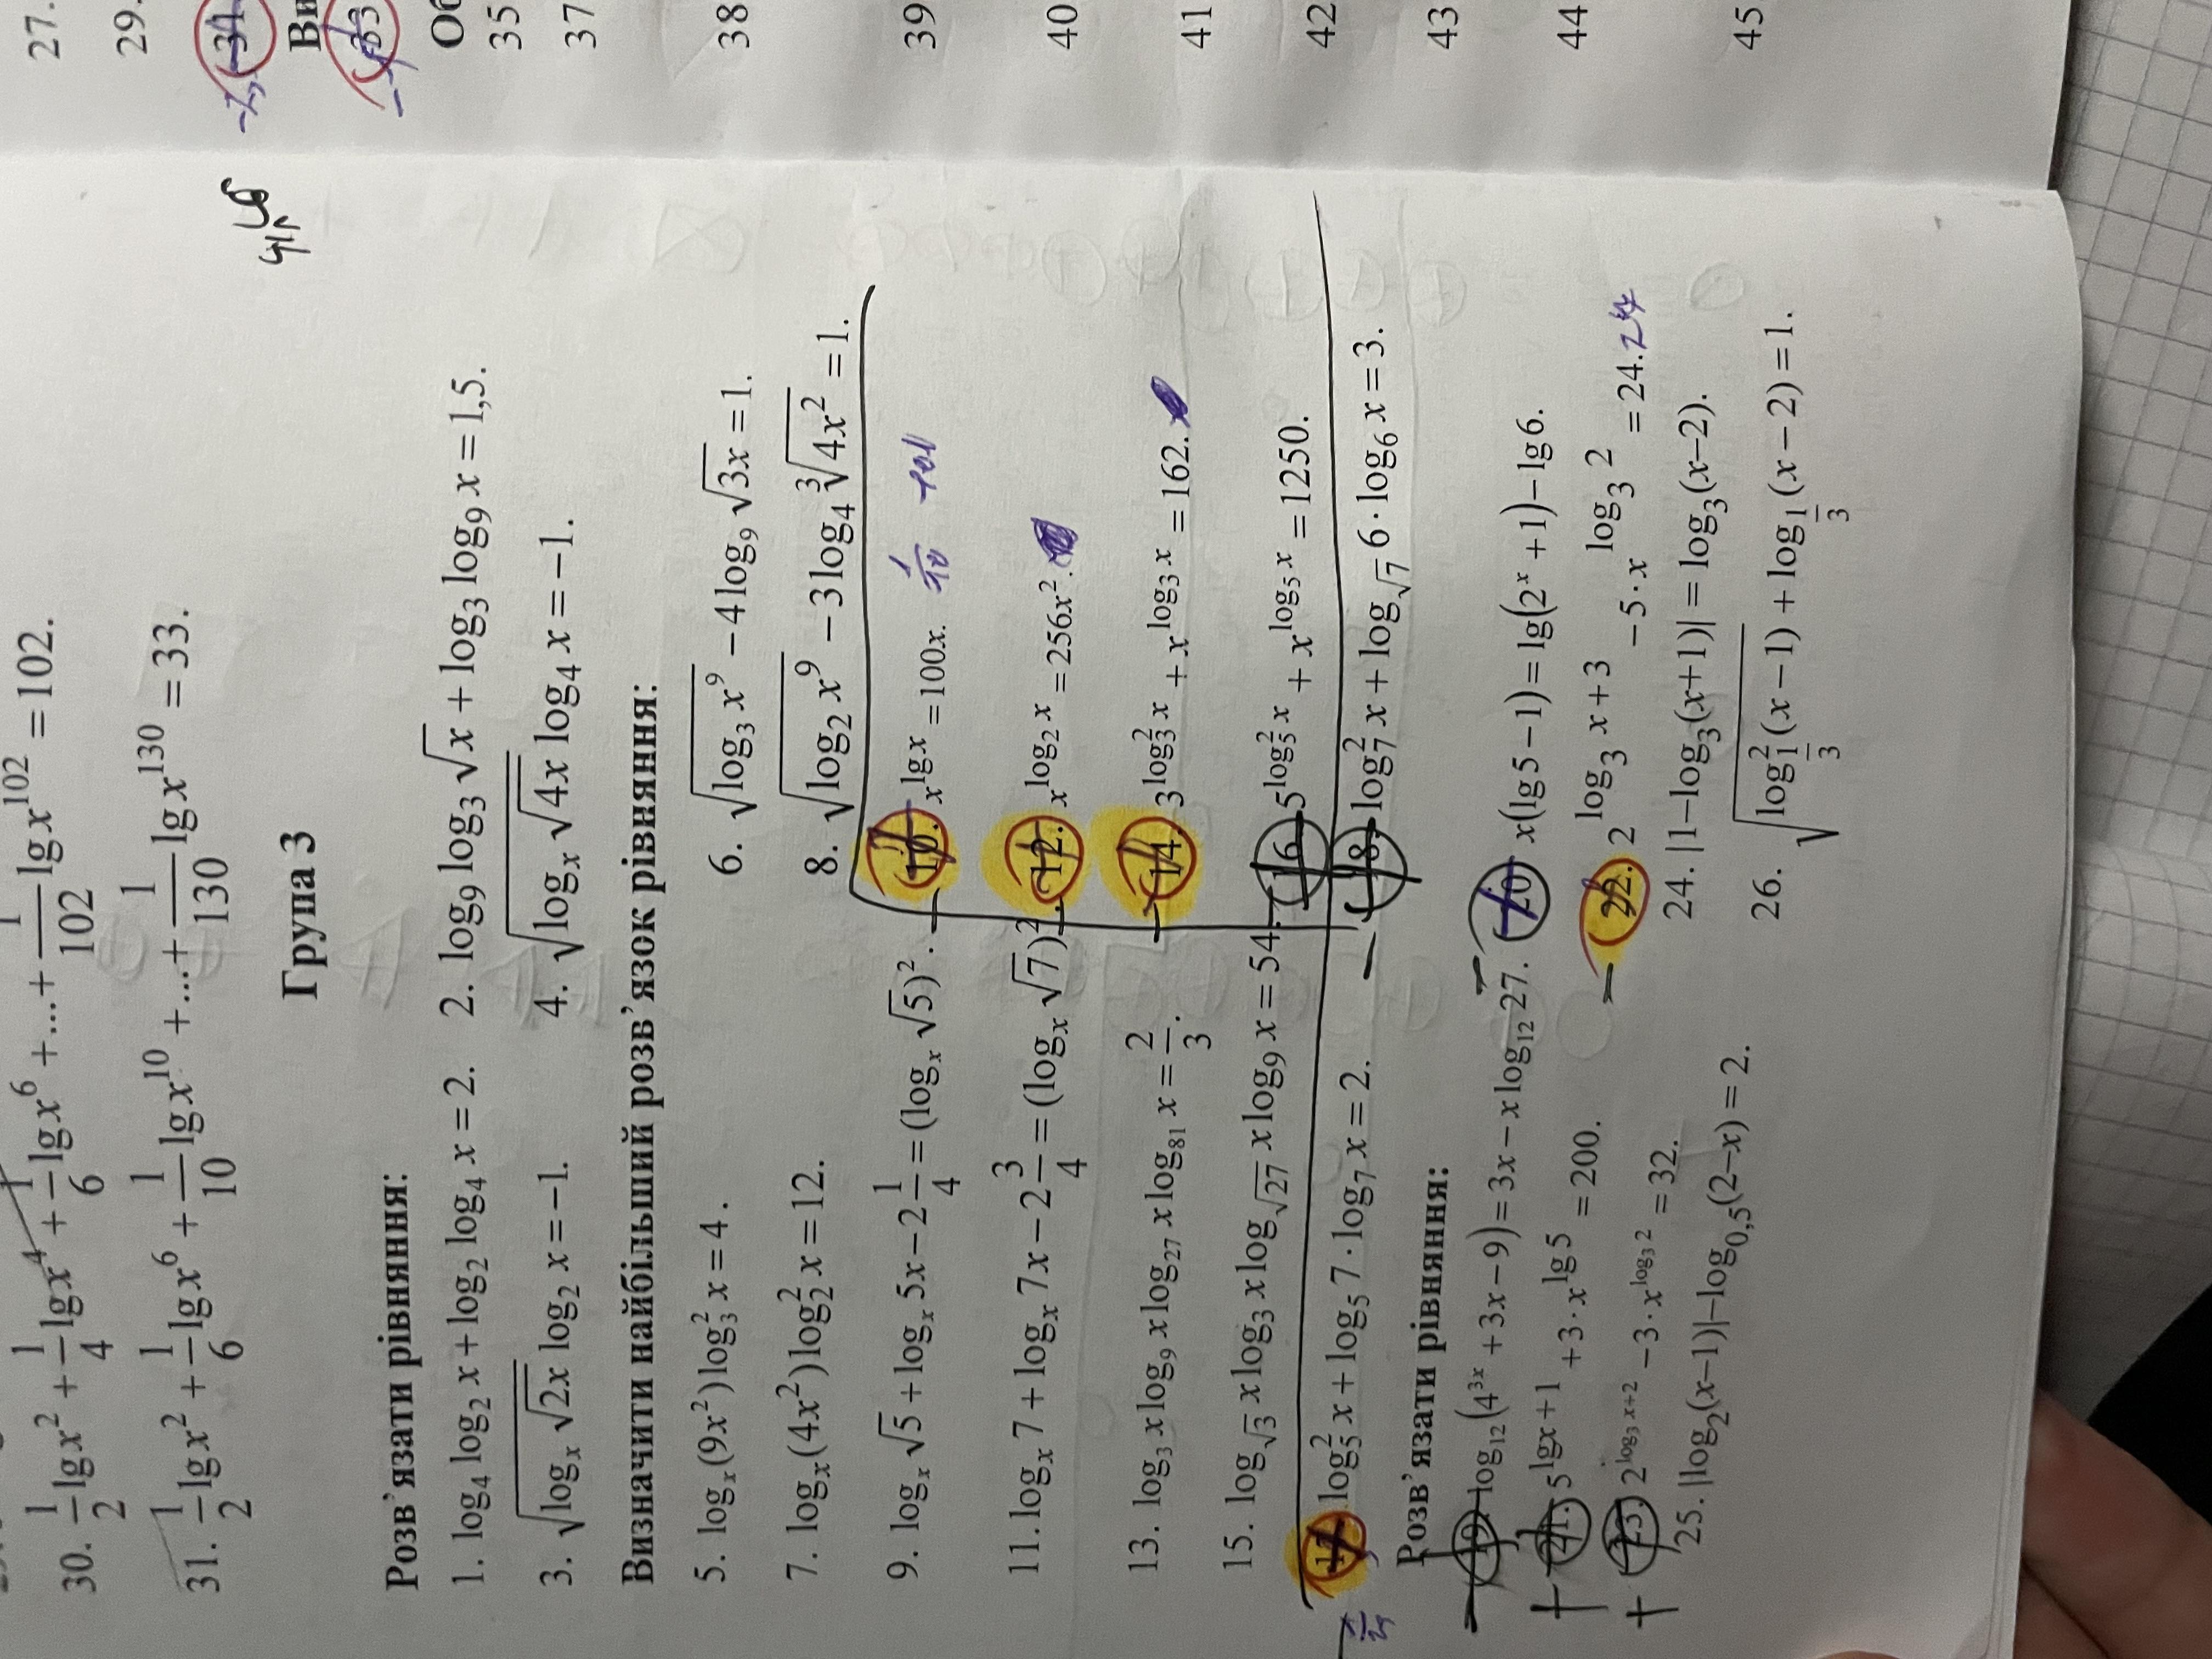 30. 1/2 lgx² + 1/4 lgx⁴ + 1/6 lgx⁶ + ... + 1/102 lgx¹⁰² = 102.
31. 1/2 lgx² + 1/6 lgx⁶ + 1/10 lgx¹⁰ + ... + 1/130 lgx¹³⁰ = 33.
Група 3
Розв’язати рівняння:
1. log₄ log₂ x + log₂ log₄ x = 2. 2. log₉ log₃ √x + log₃ log₉ x = 1,5.
3. √(logₓ √(2x)) log₂ x = −1. 4. √(logₓ √(4x)) log₄ x = −1.
Визначити найбільший розв’язок рівняння:
5. logₓ(9x²) log₃² x = 4. 6. √(log₃ x⁹) − 4 log₉ √(3x) = 1.
7. logₓ(4x²) log₂² x = 12. 8. √(log₂ x⁹) − 3 log₄ ∛(4x²) = 1.
9. logₓ √5 + logₓ 5x − 2 1/4 = (logₓ √5)². 10. x^(lgx) = 100x. 1/10
11. logₓ 7 + logₓ 7x − 2 3/4 = (logₓ √7)². 12. x^(log₂ x) = 256x².
13. log₃ x log₉ x log₂₇ x log₈₁ x = 2/3. 14. 3^(log₃² x) + x^(log₃ x) = 162.
15. log_√3 x log₃ x log_√27 x log₉ x = 54. 16. 5^(log₅² x) + x^(log₅ x) = 1250.
17. log₅² x + log₅ 7 · log₇ x = 2. 18. log₇² x + log_√7 6 · log₆ x = 3.
Розв’язати рівняння:
19. log₁₂(4^(3x) + 3x − 9) = 3x − x log₁₂ 27. 20. x(lg5 − 1) = lg(2ˣ + 1) − lg6.
21. 5^(lgx+1) + 3 · x^(lg5) = 200. 22. 2^(log₃ x+3) − 5 · x^(log₃ 2) = 24. 27
23. 2^(log₃ x+2) − 3 · x^(log₃ 2) = 32. 24. |1−log₃(x+1)| = log₃(x−2).
25. |log₂(x−1)|−log₀,₅(2−x) = 2. 26. √(log²_(1/3)(x − 1)) + log_(1/3)(x − 2) = 1.
27.
29.
31
33
35
37
38
39
40
41
42
43
44
45